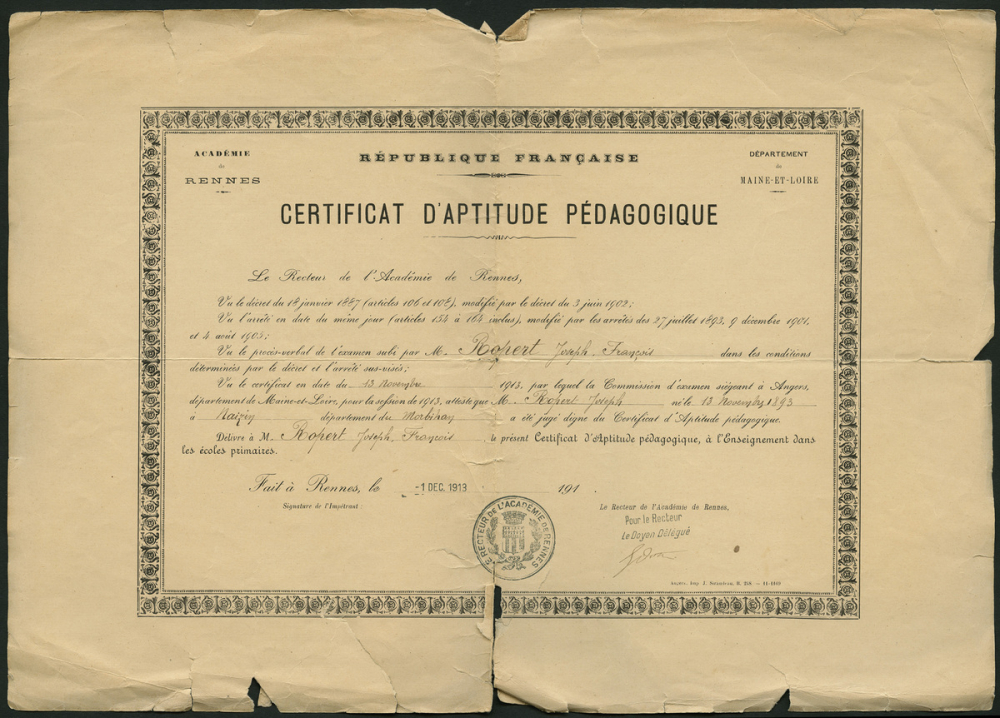 ACADÉMIE
de
RENNES
RÉPUBLIQUE FRANÇAISE
DÉPARTEMENT
de
MAINE-ET-LOIRE
CERTIFICAT D'APTITUDE PÉDAGOGIQUE
Le Recteur de l'Académie de Rennes,
Vu le décret du 18 janvier 1887 (articles 106 et 108), modifié par le décret du 3 juin 1902;
Vu l'arrêté en date du même jour (articles 154 à 164 inclus), modifié par les arrêtés des 27 juillet 1893, 9 décembre 1901,
et 4 août 1905;
Vu le procès-verbal de l'examen subi par M. Ropert Joseph François dans les conditions
déterminées par le décret et l'arrêté sus-visés;
Vu le certificat en date du 13 Novembre 1913, par lequel la Commission d'examen siégeant à Angers,
département de Maine-et-Loire, pour la session de 1913, atteste que M. Ropert Joseph né le 13 Novembre 1893
à Naizin département du Morbihan a été jugé digne du Certificat d'Aptitude pédagogique.
Délivre à M. Ropert Joseph François, le présent Certificat d'Aptitude pédagogique, à l'Enseignement dans
les écoles primaires.
Fait à Rennes, le -1 DEC. 1913 191
Signature de l'Impétrant :
Le Recteur de l'Académie de Rennes,
Pour le Recteur
Le Doyen Délégué
RECTEUR DE L'ACADÉMIE DE RENNES
Angers, Imp. J.